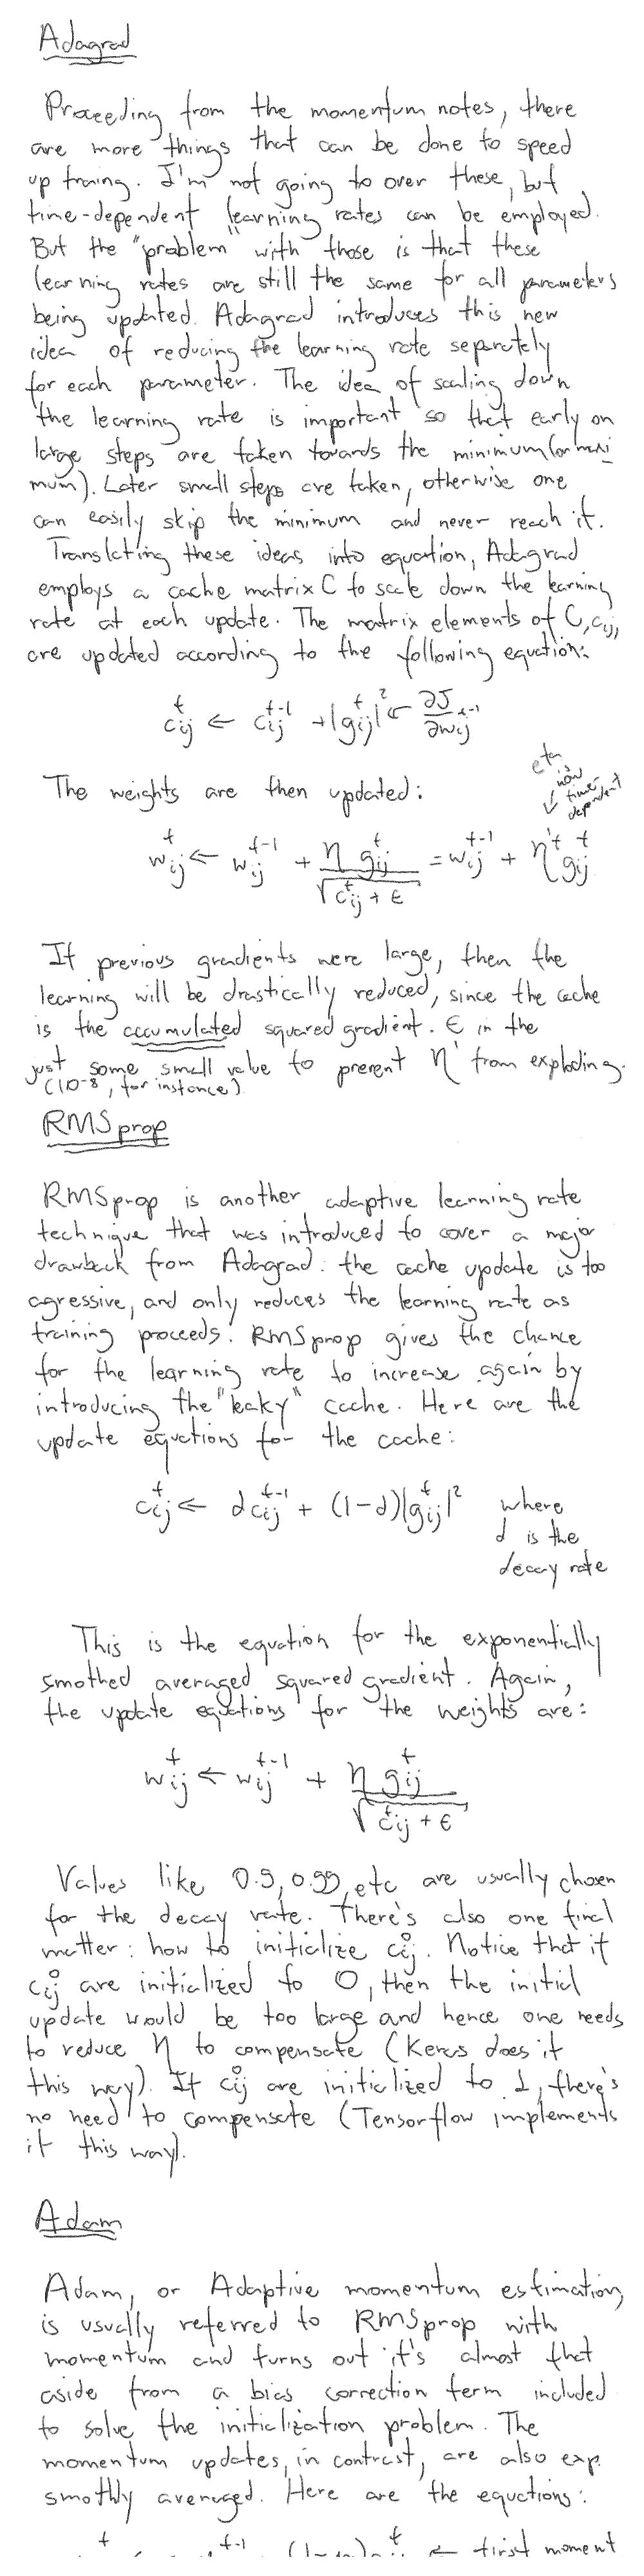 Adagrad
Proceeding from the momentum notes, there
are more things that can be done to speed
up traning. I'm not going to over these, but
time-dependent learning rates can be employed.
But the "problem" with those is that these
learning rates are still the same for all parameters
being updated. Adagrad introduces this new
idea of reducing the learning rate separately
for each parameter. The idea of scaling down
the learning rate is important so that early on
large steps are taken towards the minimum (or maxi
mum). Later small steps are taken, otherwise one
can easily skip the minimum and never reach it.
Translating these ideas into equation, Adagrad
employs a cache matrix C to scale down the learning
rate at each update. The matrix elements of C, cij,
are updated according to the following equation:
cij^t ← cij^t-1 + |gij^t|² ← ∂J/∂wij^t-1
The weights are then updated:
eta now time-dependent
wij^t ← wij^t-1 + η gij^t / √(cij^t + ε) = wij^t-1 + η'^t gij^t
If previous gradients were large, then the
learning will be drastically reduced, since the cache
is the accumulated squared gradient. ε in the
just some small value to prevent η' from exploding.
(10^-8, for instance)
RMSprop
RMSprop is another adaptive learning rate
technique that was introduced to cover a major
drawback from Adagrad: the cache update is too
agressive, and only reduces the learning rate as
training proceeds. RMSprop gives the chance
for the learning rate to increase again by
introducing the "leaky" cache. Here are the
update equations for the cache:
cij^t ← d cij^t-1 + (1-d)|gij^t|² where
d is the
decay rate
This is the equation for the exponentially
smothed averaged squared gradient. Again,
the update equations for the weights are:
wij^t ← wij^t-1 + η gij^t / √(cij^t + ε)
Values like 0.9, 0.99, etc are usually chosen
for the decay rate. There's also one final
matter: how to initialize cij^0. Notice that if
cij^0 are initialized to 0, then the initial
update would be too large and hence one needs
to reduce η to compensate (Keras does it
this way). If cij^0 are initialized to 1, there's
no need to compensate (Tensorflow implements
it this way).
Adam
Adam, or Adaptive momentum estimation,
is usually referred to RMSprop with
momentum and turns out it's almost that
aside from a bias correction term included
to solve the initialization problem. The
momentum updates, in contrast, are also exp.
smothly averaged. Here are the equations:
← first moment